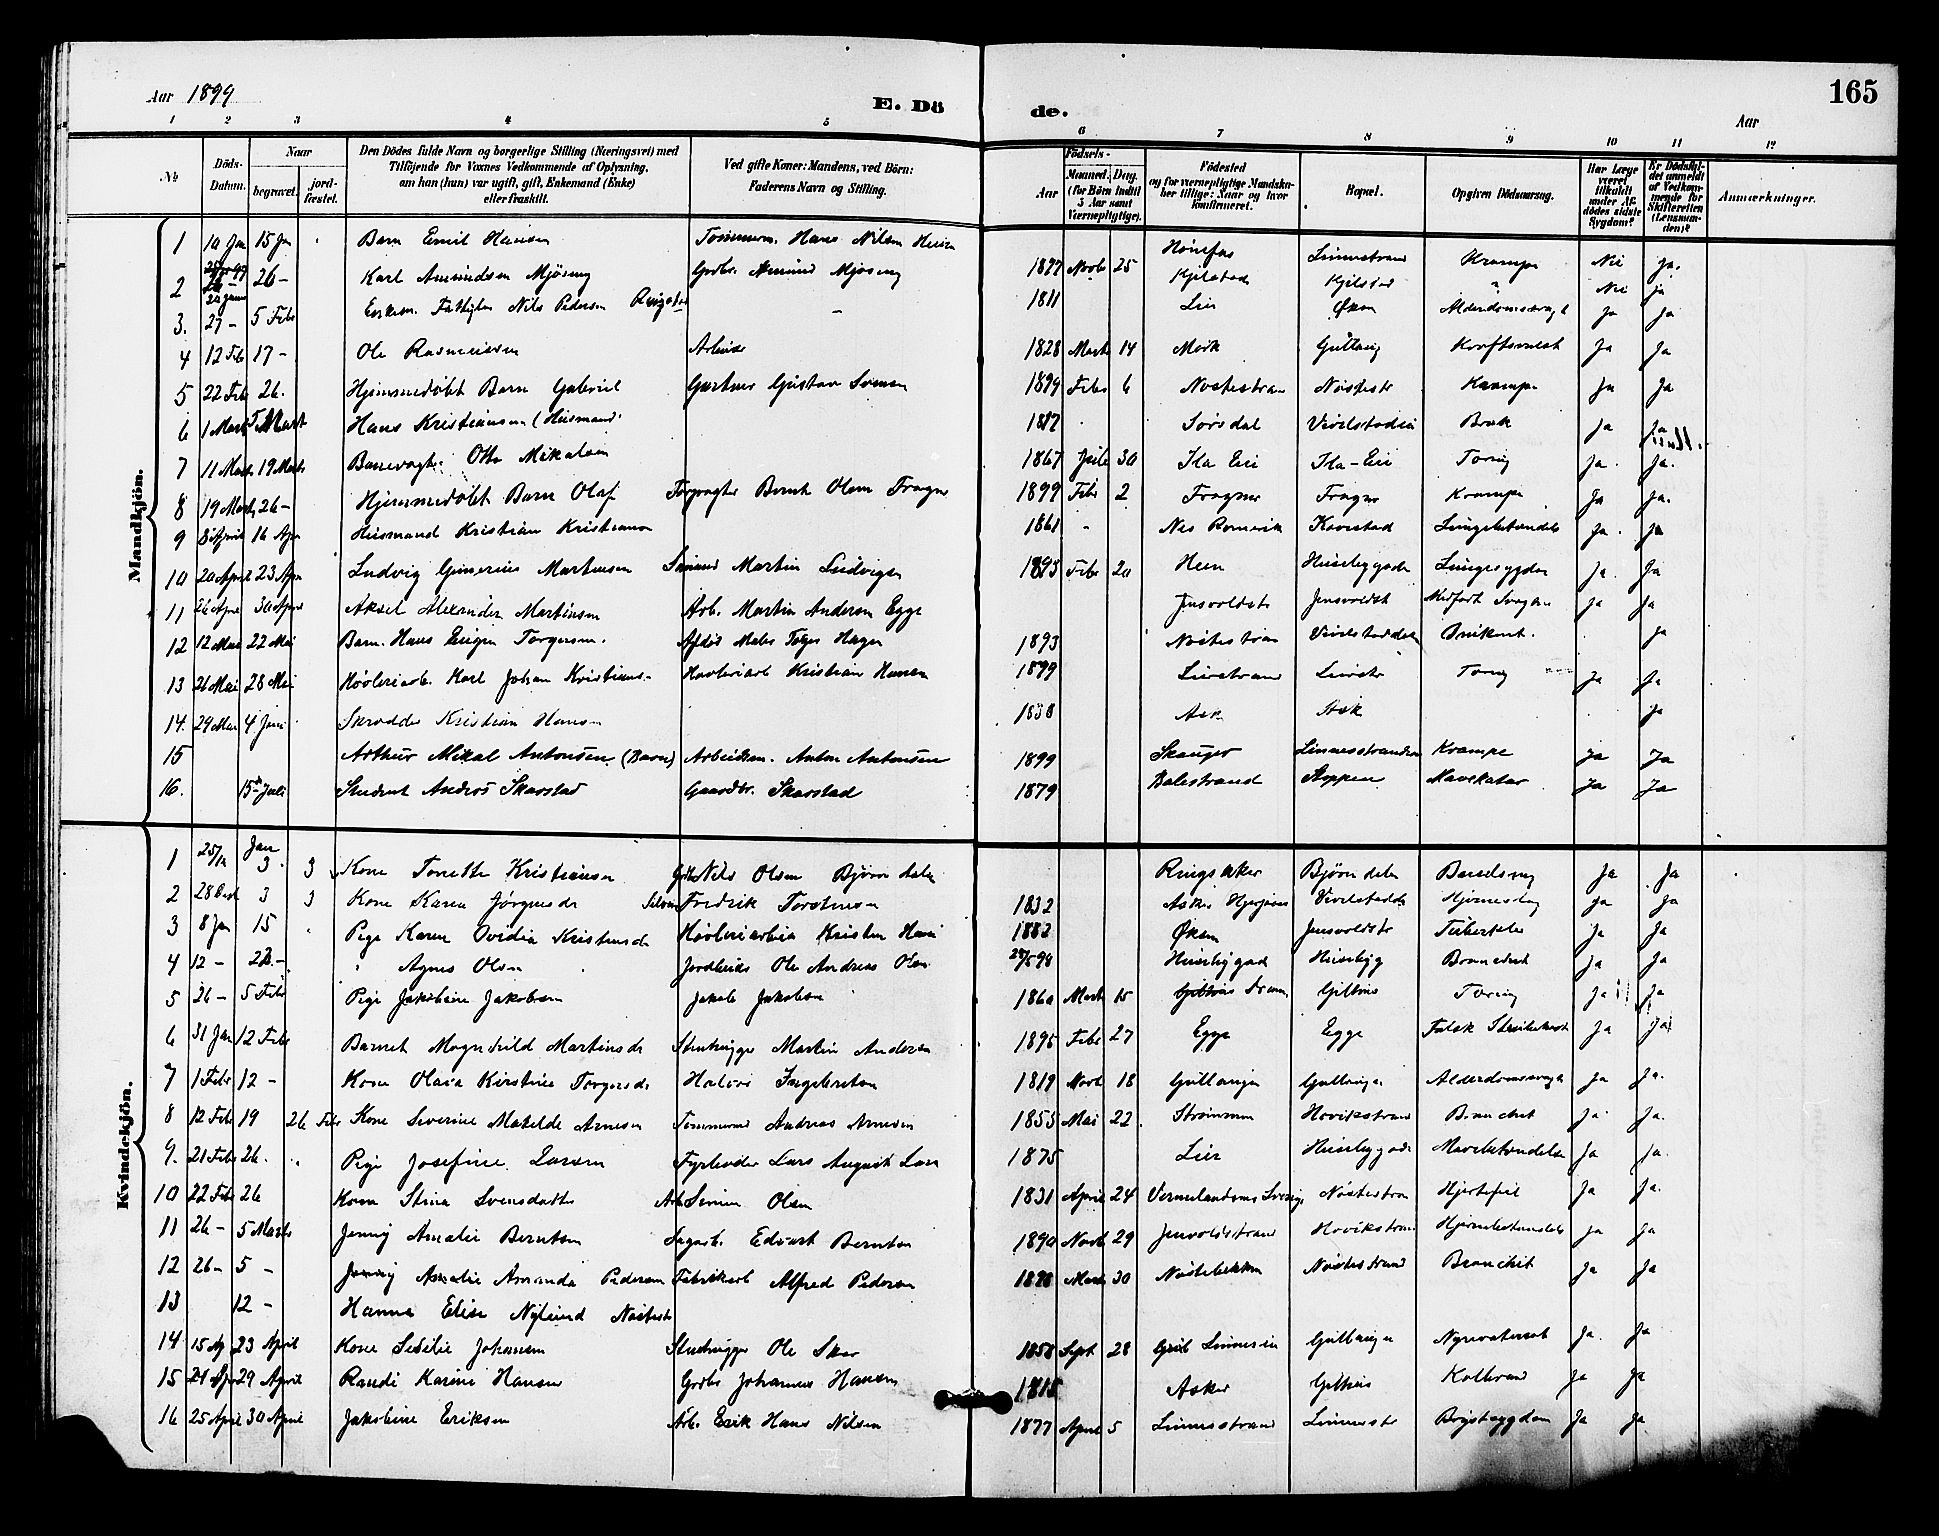 Aar 1899
E. Dö
de.
165
Aar
1 2 3 4 5 6 7 8 9 10 11 12
№
Döds-Datum.
Naar
begravet.
jord-fæstet.
Den Dödes fulde Navn og borgerlige Stilling (Næringsvei) med Tilföiende for Voxnes Vedkommende af Oplysning, om han (hun) var ugift, gift, Enkemand (Enke) eller fraskilt.
Ved gifte Koner: Mandens, ved Börn: Faderens Navn og Stilling.
Födsels-
Aar
Maaned. Dag.
(for Börn indtil 5 Aar samt Værnepligtige).
Födested og for værnepligtige Mandskaber tillige: Naar og hvor konfirmeret.
Bopæl.
Opgiven Dödsaarsag.
Har Læge været tilkaldt under Afdödes sidste Sygdom?
Er Dödsfaldet anmeldt af Vedkommende for Skifteretten (Lensmanden)?
Anmærkninger.
Mandkjön.
1 10 Jan 15 Jan Barn Emil Hansen Tømmerm. Hans Nilsen 1897 Novb 25 Hønefos Linnestrand Krampe Nei Ja.
2 26 - Karl Amundsen Mjøsung Grdbr. Amund Mjøsung Kjilstad Kjilstad Nei Ja
3. 27 - 5 Febr Nils Pedersen - 1811 Lier Øksn Alderdomssvagh Ja Ja
4 12 Feb 17 - Ole Rasmussen Arbeider 1828 Marts 14 Gullaug Ja Ja
5 22 Feb 26. Hjemmedøbt Barn Gabriel Gartner Gustav Svensen 1899 Febr 6 Nøstestran Nøstestr Krampe Ja Ja
6 1 Mart 5 Mart Hans Kristiansen (Husmand) Sørsdal Brok Ja Ja
7 11 Marts 19 Marts Banevogt. Otto Mikalsen 1867 Juli 30 Ila Eie Ila-Eie Tæring Ja. Ja.
8 19 Marts 26 - Hjemmedøbt Barn Olaf Bernt Olsen 1899 Febr 2 Krampe Ja Ja.
9 8 April 16 Apr Husmand Kristian Kristiansen 1861 - Nes Romerik Kovestad Lungebetændelse Ja. Ja
10 20 April 23 Apr Ludvig Gunerius Martinsen Martin Ludvigsen 1893 Febr 20 Huseby gade Lungesygdom Ja. Ja
11 26 Apr 30 April Aksel Alexander Martinsen Arb. Martin Andersen Egge Jensvoldstr Jensvoldst Medfødt Svaghed Ja Ja
12 12 Mai 22 Mai Barn. Hans Eugen Torgersen. 1893 Nøstestran Ja
13 26 Mai 28 Mai Høvleriarb. Karl Johan Kristians- Høvleriarb Kristian Hansen 1899 Lierstrand Lierstr Tæring Ja Ja
14. 29 Mai 4 Juni Skrædder Kristian Hansen 1838 Ask Ask Ja
15 Arthur Mikal Antonsen (Barn) Arbeidsm. Anton Antonsen 1899 Skauger Linnesstranden Krampe Ja Ja
16. 15de Juli Student Andres Skarstad Gaardbr. Skarstad 1879 Balestrand Stoppen Mavekatar Ja Ja
Kvindekjön.
1 25/12 Jan 3. 3 Kone Tonette Kristiansen Grdb Nils Olsen Bjørndalen Ringsaker Bjørndalen Barselseng Ja Ja
2 28 Decb 3 3 Kone Karen Jørgensdr Fredrik Torstensen 1832 Asker Ja Ja
3 8 Jan 15 Pige Karen Ovidia Kristensdr Høvleriarbeid Kristen 1882 Øksn Jensvoldstr Tuberkler Ja Ja
4 12 - 22 - " Agnes Olsen Jordbruks Ole Andreas Olsen Husebygad Husebyg Bronchit Ja Ja
5 26 - 5 Febr Pige Jakobine Jakobsen Jakob Jakobsen 1860 Marts 15 Gilhus Tæring Ja Ja
6 31 Jan 12 Febr Barnet Magnhild Martinsdr Stenhugger Martin Andersen 1895 Febr 27 Egge Egge Falsk Strubehoste Ja Ja
7 1 Febr 12 - Kone Olava Kirstine Torgersdr Halvor Ingebretsen 1819 Novb 18 Gullaugen Gullaugen Alderdomssvaghed Ja Ja.
8 12 Febr 19 26 Febr Kone Severine Matilde Arnesen Tømmermd Andreas Arnesen 1855 Mai 22 Strømmen Hovikstrand Bronchit Ja. Ja.
9. 21 Febr 26. Pige Josefine Larsen Fyrbøder Lars August Larsen 1875 Lier Husebygade Mavebetændelse Ja Ja.
10 22 Febr 26 Kone Stina Svensdatter Arb. Simen Olsen 1831 April 24 Vermelandsnes Sverige Nøstestran Hjertefeil Ja Ja.
11 26 - 5 Marts Jenny Amalie Berntsen Sagarb. Edvart Berntsen 1890 Novb 29 Jensvoldstrand Hovikstran Hjernebetændelse Ja Ja
12 26 - 5 - Amalie Amanda Pedersen Fabrikarb Alfred Pedersen 1898 Marts 30 Nøstebakken Nøstestrand Bronchit Ja Ja
13 12 - Hanna Elise Nylund Nøstestr
14 15 Ap 23 April Kone Sesilie Johansen Stenhugger Ole Skar 1858 Sept 28 Gullaugen Ja. Ja
15 24 Apr 29 April Randi Karine Hansen Grdbr Johannes Hansen 1815 Asker Gilhus Koldbrand Ja Ja
16 25 April 30 April Jakobine Eriksen Arb. Erik Hans Nilsen 1877 April 5 Linnesstrand Linnesstr Brystsygdom Ja Ja